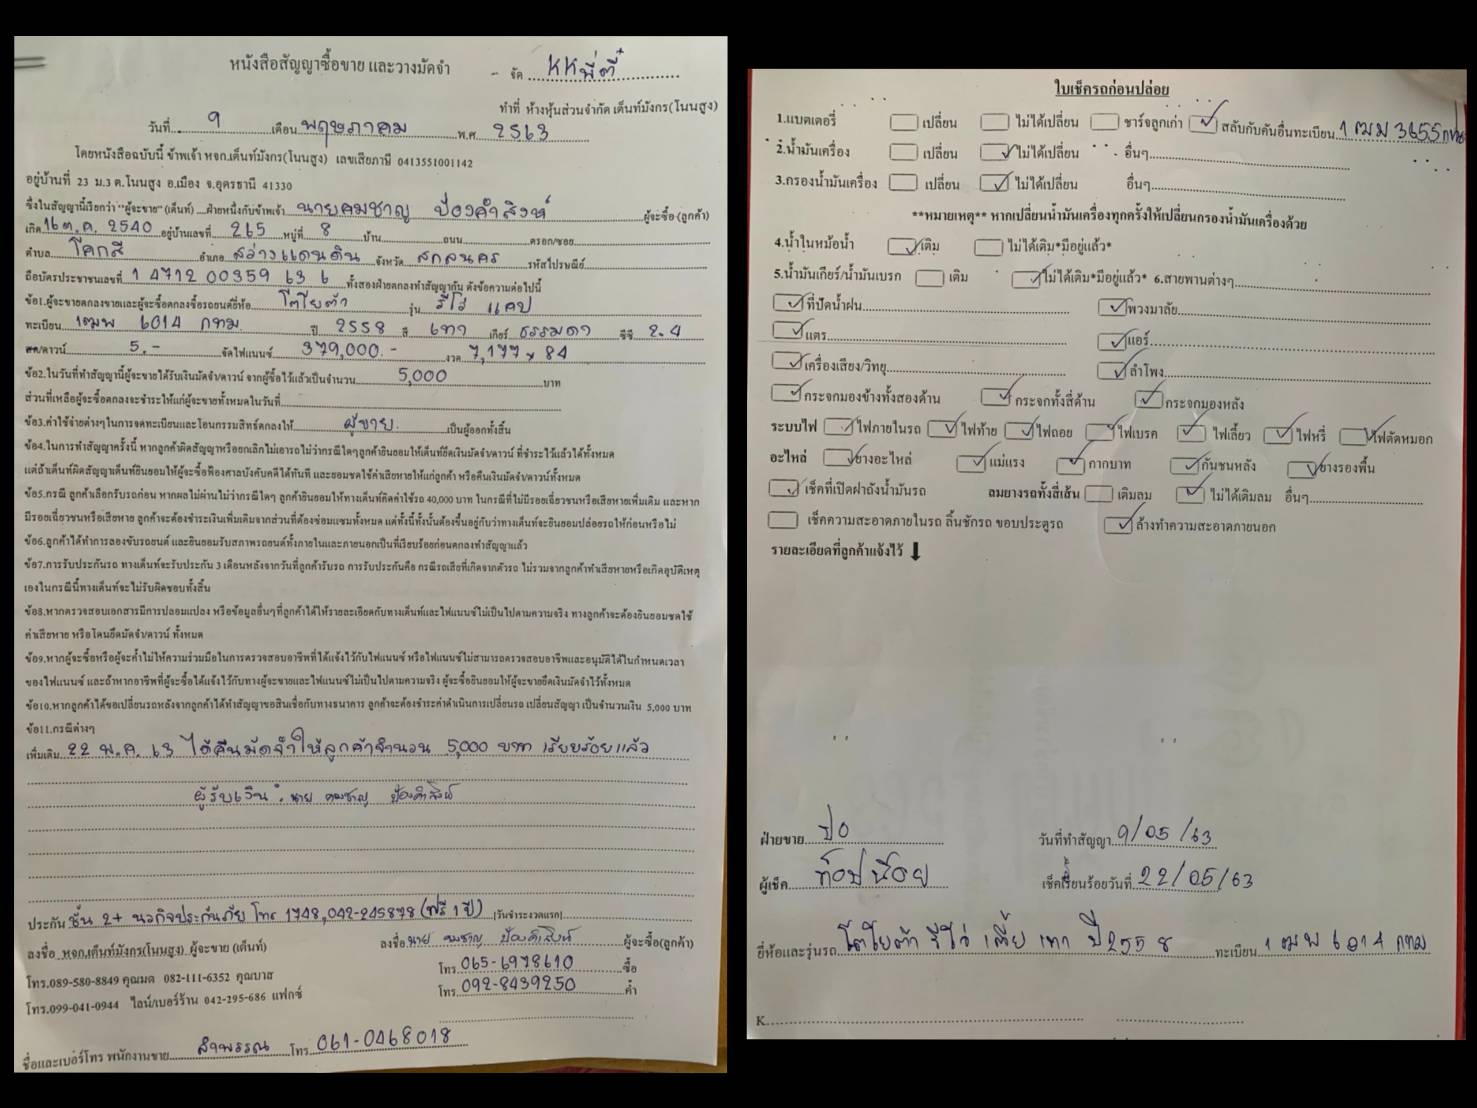 หนังสือสัญญาซื้อขาย และวางมัดจำ
- จัด KKพี่ตี๋
ทำที่ ห้างหุ้นส่วนจำกัด เต็นท์มังกร(โนนสูง)
วันที่ 9 เดือน พฤษภาคม พ.ศ. 2563
โดยหนังสือฉบับนี้ ข้าพเจ้า หจก.เต็นท์มังกร(โนนสูง) เลขเสียภาษี 0413551001142
อยู่บ้านที่ 23 ม.3 ต.โนนสูง อ.เมือง จ.อุดรธานี 41330
ซึ่งในสัญญานี้เรียกว่า "ผู้จะขาย" (เต็นท์) ฝ่ายหนึ่งกับข้าพเจ้า นายคมชาญ ป้องคำสิงห์ ผู้จะซื้อ (ลูกค้า)
เกิด 16 ต.ค. 2540 อยู่บ้านเลขที่ 265 หมู่ที่ 8 บ้าน ถนน ตรอก/ซอย
ตำบล โคกสี อำเภอ สว่างแดนดิน จังหวัด สกลนคร รหัสไปรษณีย์
ถือบัตรประชาชนเลขที่ 1 4712 00359 63 6 ทั้งสองฝ่ายตกลงทำสัญญากัน ดังข้อความต่อไปนี้
ข้อ1.ผู้จะขายตกลงขายและผู้จะซื้อตกลงซื้อรถยนต์ยี่ห้อ โตโยต้า รุ่น รีโว่ แคป
ทะเบียน 1ฒพ 6014 กทม ปี 2558 สี เทา เกียร์ ธรรมดา ซีซี 2.4
สด/ดาวน์ 5.- จัดไฟแนนซ์ 379,000.- งวด 7,177 x 84
ข้อ2.ในวันที่ทำสัญญานี้ผู้จะขายได้รับเงินมัดจำ/ดาวน์ จากผู้ซื้อไว้แล้วเป็นจำนวน 5,000 บาท
ส่วนที่เหลือผู้จะซื้อตกลงจะชำระให้แก่ผู้จะขายทั้งหมดในวันที่
ข้อ3.ค่าใช้จ่ายต่างๆในการจดทะเบียนและโอนกรรมสิทธิ์ตกลงให้ ผู้ขาย เป็นผู้ออกทั้งสิ้น
ข้อ4.ในการทำสัญญาครั้งนี้ หากลูกค้าผิดสัญญาหรือยกเลิกไม่เอารถไม่ว่ากรณีใดๆลูกค้ายินยอมให้เต็นท์ยึดเงินมัดจำ/ดาวน์ ที่ชำระไว้แล้วได้ทั้งหมด
แต่ถ้าเต็นท์ผิดสัญญาเต็นท์ยินยอมให้ผู้จะซื้อฟ้องศาลบังคับคดีได้ทันที และยอมชดใช้ค่าเสียหายให้แก่ลูกค้า หรือคืนเงินมัดจำ/ดาวน์ทั้งหมด
ข้อ5.กรณี ลูกค้าเลือกรับรถก่อน หากผลไม่ผ่านไม่ว่ากรณีใดๆ ลูกค้ายินยอมให้ทางเต็นท์คิดค่าใช้รถ 40,000 บาท ในกรณีที่ไม่มีรอยเฉี่ยวชนหรือเสียหายเพิ่มเติม และหาก
มีรอยเฉี่ยวชนหรือเสียหาย ลูกค้าจะต้องชำระเงินเพิ่มเติมจากส่วนที่ต้องซ่อมแซมทั้งหมด แต่ทั้งนี้ทั้งนั้นต้องขึ้นอยู่กับว่าทางเต็นท์จะยินยอมปล่อยรถให้ก่อนหรือไม่
ข้อ6.ลูกค้าได้ทำการลองขับรถยนต์ และยินยอมรับสภาพรถยนต์ทั้งภายในและภายนอกเป็นที่เรียบร้อยก่อนตกลงทำสัญญาแล้ว
ข้อ7.การรับประกันรถ ทางเต็นท์จะรับประกัน 3 เดือนหลังจากวันที่ลูกค้ารับรถ การรับประกันคือ กรณีรถเสียที่เกิดจากตัวรถ ไม่รวมจากลูกค้าทำเสียหายหรือเกิดอุบัติเหตุ
เองในกรณีนี้ทางเต็นท์จะไม่รับผิดชอบทั้งสิ้น
ข้อ8.หากตรวจสอบเอกสารมีการปลอมแปลง หรือข้อมูลอื่นๆที่ลูกค้าได้ให้รายละเอียดกับทางเต็นท์และไฟแนนซ์ไม่เป็นไปตามความจริง ทางลูกค้าจะต้องยินยอมชดใช้
ค่าเสียหาย หรือโดนยึดมัดจำ/ดาวน์ ทั้งหมด
ข้อ9.หากผู้จะซื้อหรือผู้จะค้ำไม่ให้ความร่วมมือในการตรวจสอบอาชีพที่ได้แจ้งไว้กับไฟแนนซ์ หรือไฟแนนซ์ไม่สามารถตรวจสอบอาชีพและอนุมัติได้ในกำหนดเวลา
ของไฟแนนซ์ และถ้าหากอาชีพที่ผู้จะซื้อได้แจ้งไว้กับทางผู้จะขายและไฟแนนซ์ไม่เป็นไปตามความจริง ผู้จะซื้อยินยอมให้ผู้จะขายยึดเงินมัดจำไว้ทั้งหมด
ข้อ10.หากลูกค้าได้ขอเปลี่ยนรถหลังจากลูกค้าได้ทำสัญญาขอสินเชื่อกับทางธนาคาร ลูกค้าจะต้องชำระค่าดำเนินการเปลี่ยนรถ เปลี่ยนสัญญา เป็นจำนวนเงิน 5,000 บาท
ข้อ11.กรณีต่างๆ
เพิ่มเติม 22 พ.ค. 63 ได้คืนมัดจำให้ลูกค้าจำนวน 5,000 บาท เรียบร้อยแล้ว
ผู้รับเงิน นาย คมชาญ ป้องคำสิงห์
ประกัน ชั้น 2+ นวกิจประกันภัย โทร 1748,042-245878 (ฟรี 1 ปี) (วันชำระงวดแรก)
ลงชื่อ หจก.เต็นท์มังกร(โนนสูง) ผู้จะขาย (เต็นท์)
ลงชื่อ นาย คมชาญ ป้องคำสิงห์ ผู้จะซื้อ(ลูกค้า)
โทร.089-580-8849 คุณมด 082-111-6352 คุณบาส
โทร. 065-6978610 ซื้อ
โทร.099-041-0944 ไลน์/เบอร์ร้าน 042-295-686 แฟกซ์
โทร. 092-8439250 ค้ำ
ชื่อและเบอร์โทร พนักงานขาย ลำพรรณ โทร 061-0468018
ใบเช็ครถก่อนปล่อย
1.แบตเตอรี่ เปลี่ยน ไม่ได้เปลี่ยน ชาร์จลูกเก่า สลับกับคันอื่นทะเบียน 1 ฒฆ 3655 กทม
2.น้ำมันเครื่อง เปลี่ยน ไม่ได้เปลี่ยน อื่นๆ
3.กรองน้ำมันเครื่อง เปลี่ยน ไม่ได้เปลี่ยน อื่นๆ
**หมายเหตุ** หากเปลี่ยนน้ำมันเครื่องทุกครั้งให้เปลี่ยนกรองน้ำมันเครื่องด้วย
4.น้ำในหม้อน้ำ เติม ไม่ได้เติม*มีอยู่แล้ว*
5.น้ำมันเกียร์/น้ำมันเบรก เติม ไม่ได้เติม*มีอยู่แล้ว* 6.สายพานต่างๆ
ที่ปัดน้ำฝน พวงมาลัย
แตร แอร์
เครื่องเสียง/วิทยุ ลำโพง
กระจกมองข้างทั้งสองด้าน กระจกทั้งสี่ด้าน กระจกมองหลัง
ระบบไฟ ไฟภายในรถ ไฟท้าย ไฟถอย ไฟเบรค ไฟเลี้ยว ไฟหรี่ ไฟตัดหมอก
อะไหล่ ยางอะไหล่ แม่แรง กากบาท กันชนหลัง ยางรองพื้น
เช็คที่เปิดฝาถังน้ำมันรถ ลมยางรถทั้งสี่เส้น เติมลม ไม่ได้เติมลม อื่นๆ
เช็คความสะอาดภายในรถ ลิ้นชักรถ ขอบประตูรถ ล้างทำความสะอาดภายนอก
รายละเอียดที่ลูกค้าแจ้งไว้
ฝ่ายขาย วันที่ทำสัญญา 9/05/63
ผู้เช็ค ท๊อปน้อย เช็คเรียบร้อยวันที่ 22/05/63
ยี่ห้อและรุ่นรถ โตโยต้า รีโว่ เตี้ย เทา ปี 2558 ทะเบียน 1 ฒพ 6014 กทม
K.